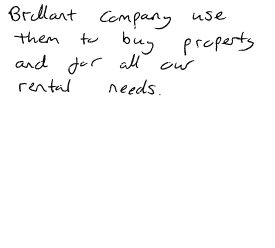 Brillant company use
them to buy property
and for all our
rental needs.